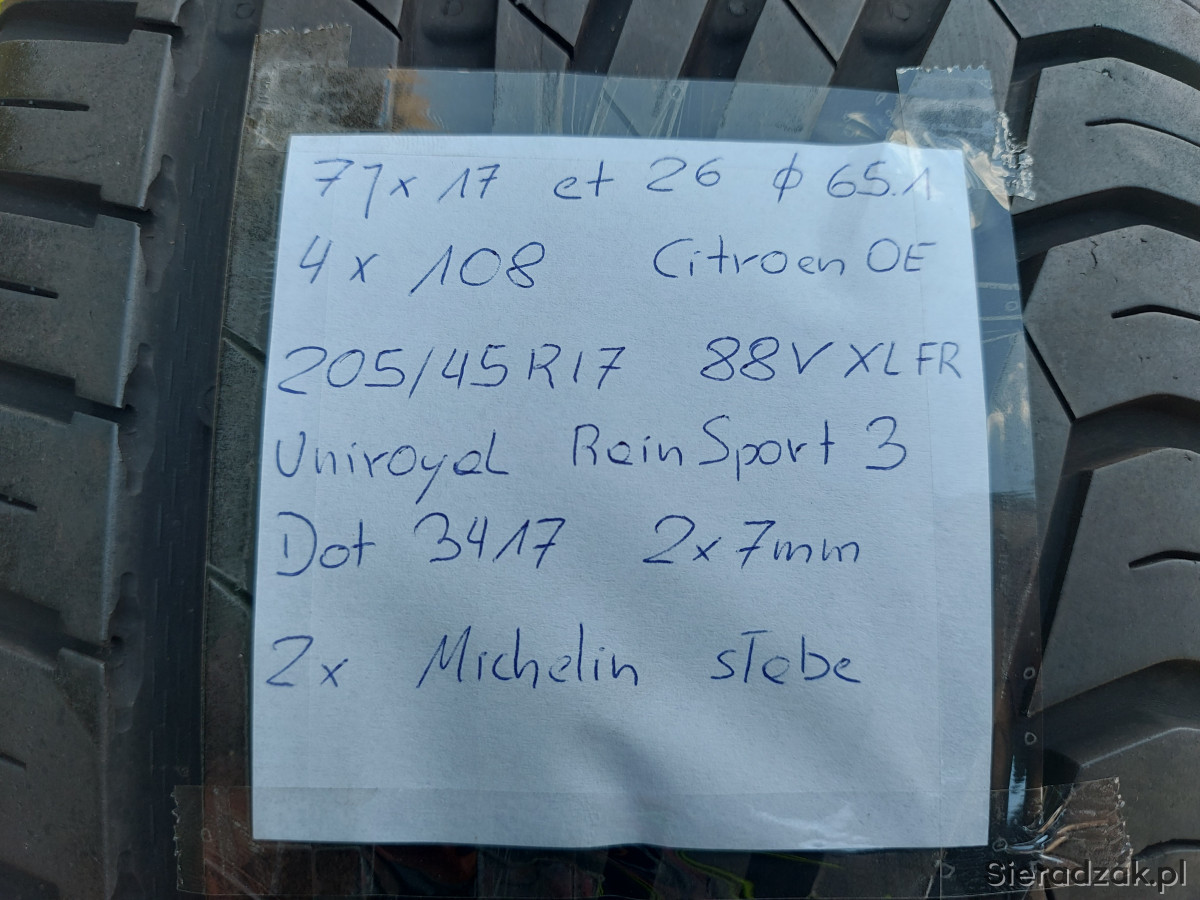 7J x 17 et 26 ϕ 65.1
4 x 108 Citroen OE
205/45 R17 88V XL FR
Uniroyal Rain Sport 3
Dot 3417 2x7mm
2x Michelin słabe
Sieradzak.pl